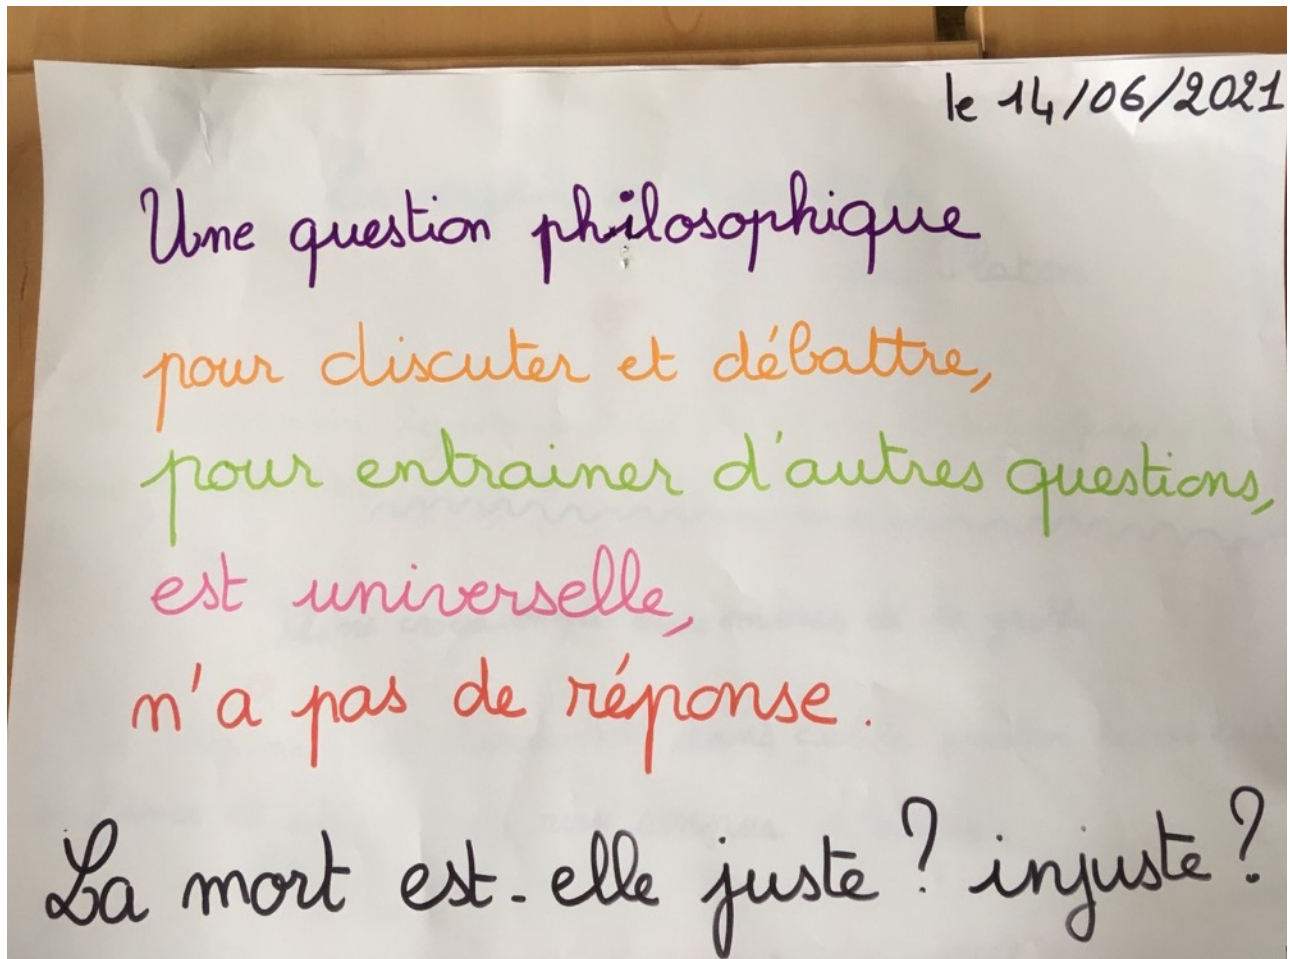 le 14/06/2021
Une question philosophique
pour discuter et débattre,
pour entrainer d'autres questions,
est universelle,
n'a pas de réponse.
La mort est-elle juste ? injuste ?